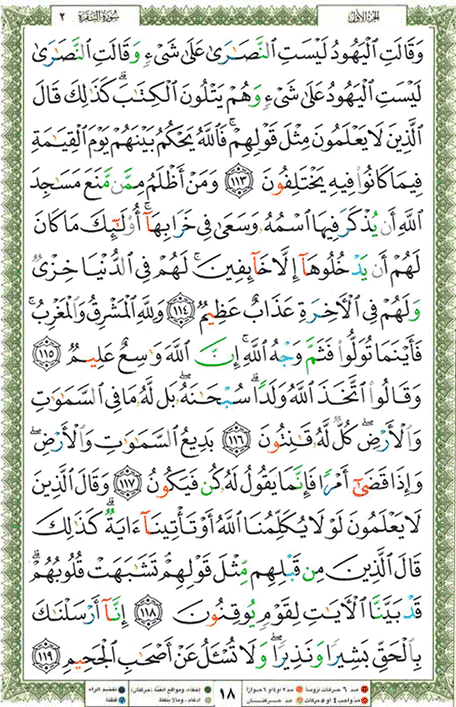 الجزء الأول سورة البقرة ٢
وَقَالَتِ ٱلْيَهُودُ لَيْسَتِ ٱلنَّصَٰرَىٰ عَلَىٰ شَىْءٍ وَقَالَتِ ٱلنَّصَٰرَىٰ
لَيْسَتِ ٱلْيَهُودُ عَلَىٰ شَىْءٍ وَهُمْ يَتْلُونَ ٱلْكِتَٰبَ ۗ كَذَٰلِكَ قَالَ
ٱلَّذِينَ لَا يَعْلَمُونَ مِثْلَ قَوْلِهِمْ ۚ فَٱللَّهُ يَحْكُمُ بَيْنَهُمْ يَوْمَ ٱلْقِيَٰمَةِ
فِيمَا كَانُوا۟ فِيهِ يَخْتَلِفُونَ ١١٣ وَمَنْ أَظْلَمُ مِمَّن مَّنَعَ مَسَٰجِدَ
ٱللَّهِ أَن يُذْكَرَ فِيهَا ٱسْمُهُۥ وَسَعَىٰ فِى خَرَابِهَآ ۚ أُو۟لَٰٓئِكَ مَا كَانَ
لَهُمْ أَن يَدْخُلُوهَآ إِلَّا خَآئِفِينَ ۚ لَهُمْ فِى ٱلدُّنْيَا خِزْىٌ
وَلَهُمْ فِى ٱلْءَاخِرَةِ عَذَابٌ عَظِيمٌ ١١٤ وَلِلَّهِ ٱلْمَشْرِقُ وَٱلْمَغْرِبُ ۚ
فَأَيْنَمَا تُوَلُّوا۟ فَثَمَّ وَجْهُ ٱللَّهِ ۚ إِنَّ ٱللَّهَ وَٰسِعٌ عَلِيمٌ ١١٥
وَقَالُوا۟ ٱتَّخَذَ ٱللَّهُ وَلَدًا ۗ سُبْحَٰنَهُۥ ۖ بَل لَّهُۥ مَا فِى ٱلسَّمَٰوَٰتِ
وَٱلْأَرْضِ ۖ كُلٌّ لَّهُۥ قَٰنِتُونَ ١١٦ بَدِيعُ ٱلسَّمَٰوَٰتِ وَٱلْأَرْضِ ۖ
وَإِذَا قَضَىٰٓ أَمْرًا فَإِنَّمَا يَقُولُ لَهُۥ كُن فَيَكُونُ ١١٧ وَقَالَ ٱلَّذِينَ
لَا يَعْلَمُونَ لَوْلَا يُكَلِّمُنَا ٱللَّهُ أَوْ تَأْتِينَآ ءَايَةٌ ۗ كَذَٰلِكَ
قَالَ ٱلَّذِينَ مِن قَبْلِهِم مِّثْلَ قَوْلِهِمْ ۘ تَشَٰبَهَتْ قُلُوبُهُمْ ۗ
قَدْ بَيَّنَّا ٱلْءَايَٰتِ لِقَوْمٍ يُوقِنُونَ ١١٨ إِنَّآ أَرْسَلْنَٰكَ
بِٱلْحَقِّ بَشِيرًا وَنَذِيرًا ۖ وَلَا تُسْـَٔلُ عَنْ أَصْحَٰبِ ٱلْجَحِيمِ ١١٩
١٨